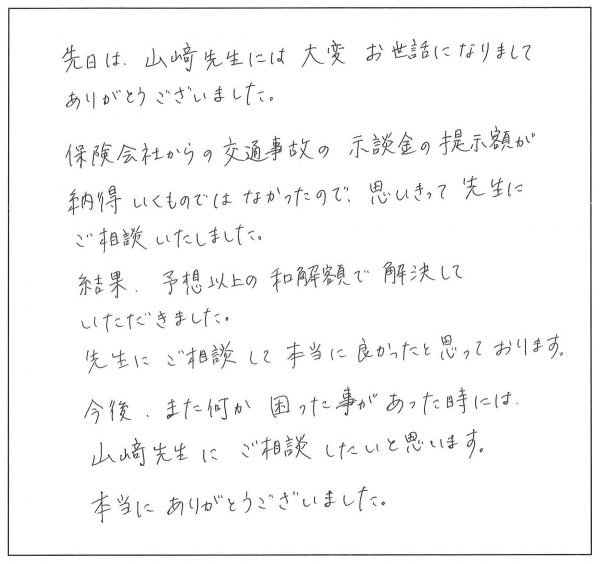 先日は、山﨑先生には大変お世話になりまして
ありがとうございました。
保険会社からの交通事故の示談金の提示額が
納得いくものではなかったので、思いきって先生に
ご相談いたしました。
結果、予想以上の和解額で解決して
いただきました。
先生にご相談して本当に良かったと思っております。
今後、また何か困った事があった時には、
山﨑先生にご相談したいと思います。
本当にありがとうございました。